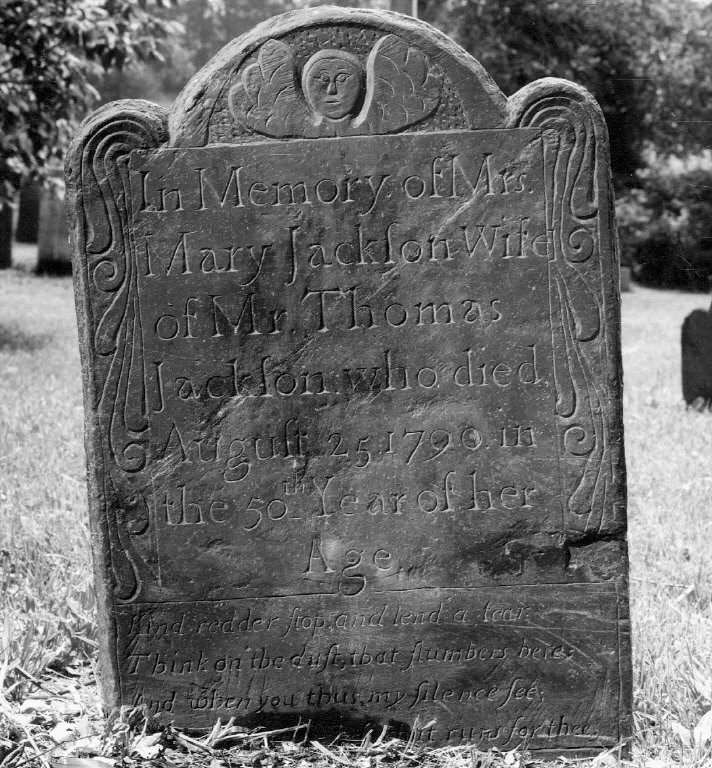 In Memory of Mrs.
Mary Jackſon Wife
of Mr. Thomas
Jackſon who died
Auguſt 25, 1790. in
the 50th Year of her
Age.
Kind redder ſtop, and lend a tear,
Think on the duſt, that ſlumbers here;
And when you thus, my ſilence ſee,
runs for thee.